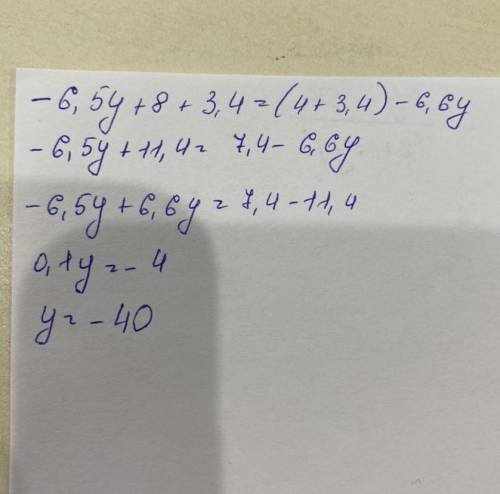 -6,5y+8+3,4=(4+3,4)-6,6y
-6,5y+11,4= 7,4-6,6y
-6,5y+6,6y=7,4-11,4
0,1y=-4
y=-40